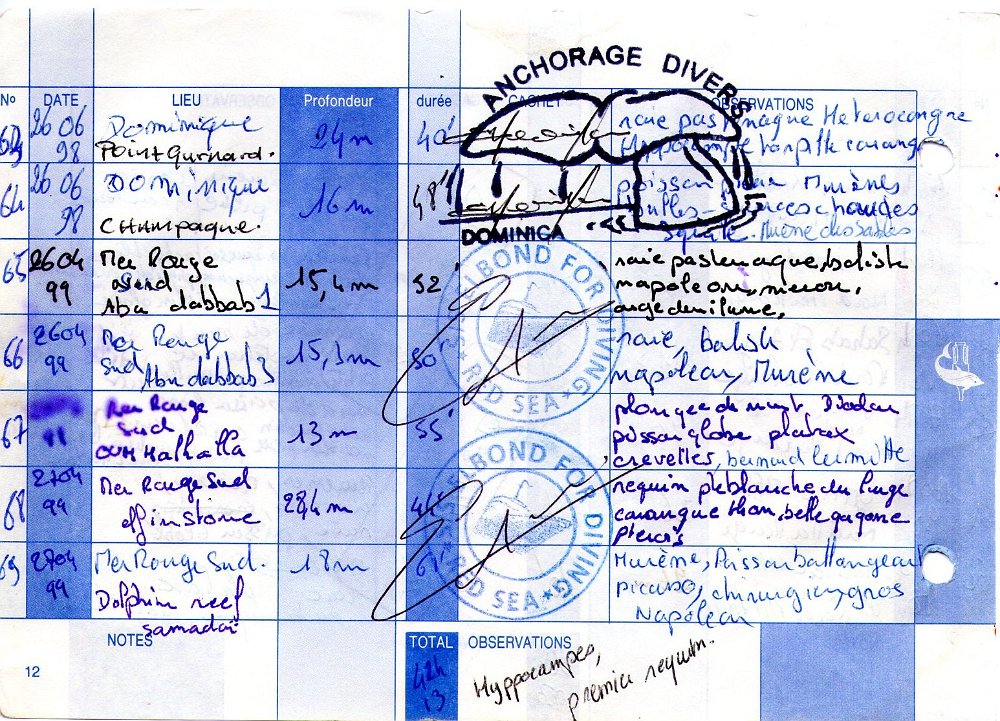 ANCHORAGE DIVERS
DOMINICA
Nº DATE LIEU Profondeur durée CACHET OBSERVATIONS
26 06 98 Dominique 24m 40 raie pastenague Heterocongre
Point Guignard. Hyppocampe
64 26 06 98 DOMinique 16m 48' poisson Murènes
CHAMPAGNE. bulles - sources chaudes
Murène des sables
65 26 04 99 Mer Rouge 15,4m 52' raie pastenague, baliste
Sud napoleon, meron,
Abu dabbab 1 ange de mi lune,
66 26 04 99 Mer Rouge 15,3m 50' raie, balist
Sud Abu dabbab 3 napoleon, Murène
67 Mer Rouge 13m 55' plongée de nuit, Diodon
Sud poisson globe
OUM Halhalla crevettes, bernard lermitte
68 27 04 99 Mer Rouge Sud 28,4m requin pte blanche du large
elfinstone carangue thon, belle gorgone
pterois
69 27 04 99 Mer Rouge Sud. 18m 61' Murène, Poisson
Dolphin reef picasso, chirurgien, gros
Samadaï Napoleon
SHELBOND FOR DIVING
RED SEA
SHELBOND FOR DIVING
RED SEA
NOTES TOTAL OBSERVATIONS
42h 13 Hyppocampes,
premier requin.
12